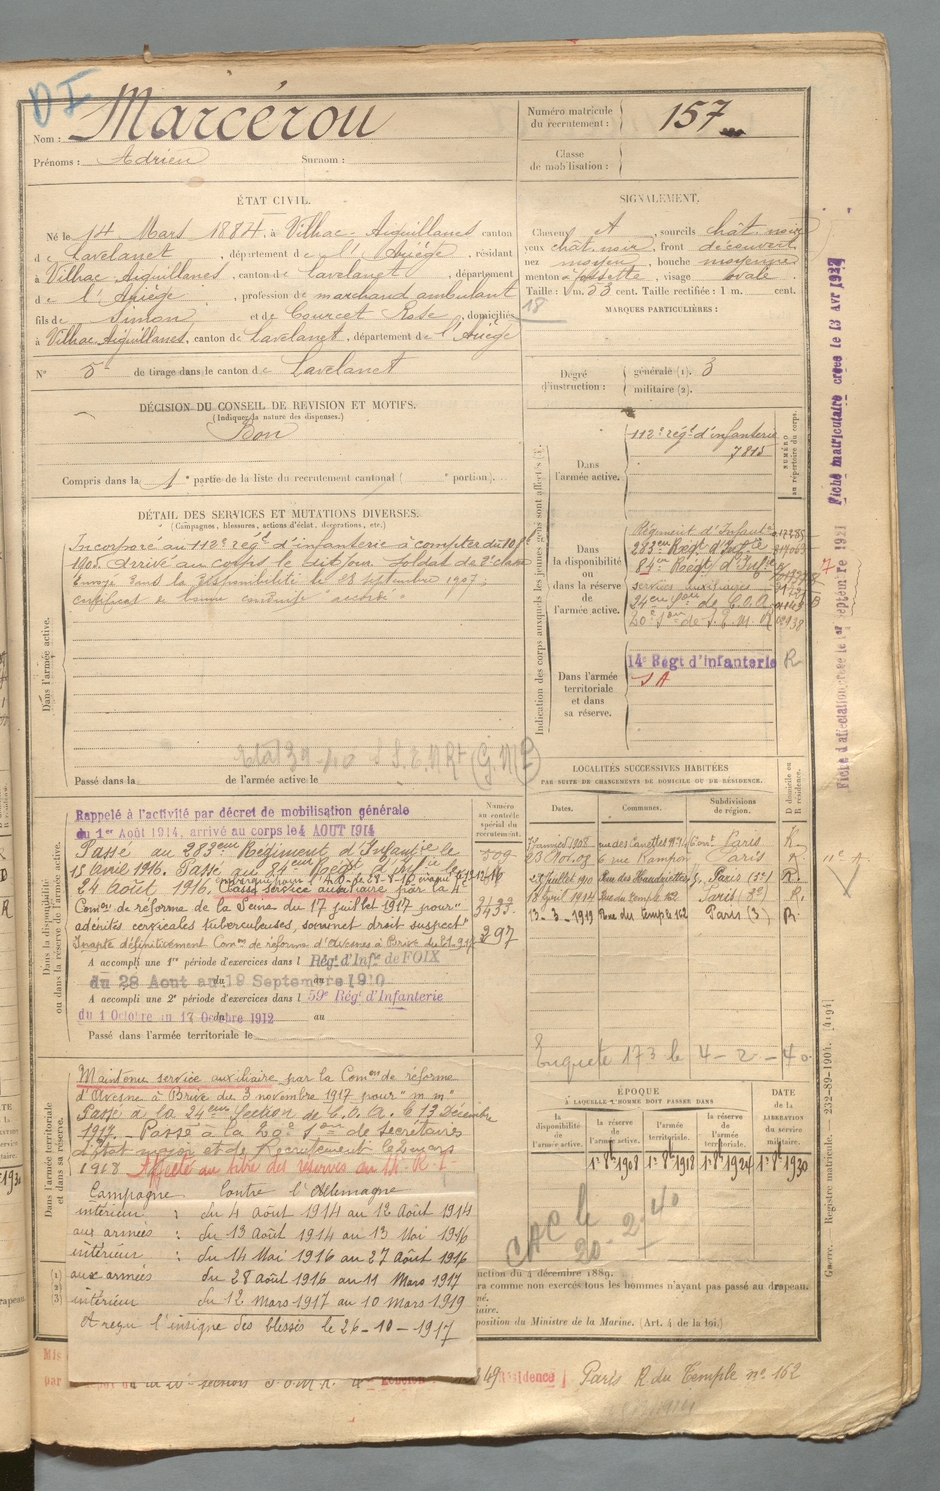 D I
Nom : Marcérou
Prénoms : Adrien Surnom :
Numéro matricule du recrutement : 157
Classe de mobilisation :
ÉTAT CIVIL.
Né le 14 Mars 1884, à Vilhac-Aiguillanes canton
de Lavelanet, département de l'Ariège, résidant
à Vilhac-Aiguillanes, canton de Lavelanet, département
de l'Ariège, profession de marchand ambulant
fils de Simon et de Courcet Rose, domiciliés
à Vilhac-Aiguillanes, canton de Lavelanet, département de l'Ariège
N° 5 de tirage dans le canton de Lavelanet
SIGNALEMENT.
Cheveux , sourcils chât. noir
yeux chât. noir, front découvert
nez moyen, bouche moyenne
menton à fossette, visage ovale
Taille : 1 m. 53 cent. Taille rectifiée : 1 m. cent.
18
MARQUES PARTICULIÈRES :
Degré d'instruction : générale (1). 3
militaire (2).
DÉCISION DU CONSEIL DE REVISION ET MOTIFS.
(Indiquer la nature des dispenses.)
Bon
Compris dans la 1e partie de la liste du recrutement cantonal ( e portion).
DÉTAIL DES SERVICES ET MUTATIONS DIVERSES.
(Campagnes, blessures, actions d'éclat, décorations, etc.)
Dans l'armée active.
Incorporé au 112e régt d'infanterie à compter du
1905. Arrivé au corps le dit jour soldat de 2e classe
Envoyé dans la disponibilité le 28 septembre 1907;
certificat de bonne conduite "accordé"
Passé dans la de l'armée active le
Indication des corps auxquels les jeunes gens sont affectés
NUMÉRO au répertoire du corps.
Dans l'armée active.
112e régt d'infanterie
7815
Dans la disponibilité ou dans la réserve de l'armée active.
Régiment d'Infanterie
283e Régt d'Infie
84e Régt d'Infie
services auxiliaires
24eme Son de C.O.A.
20e Son de S.E.M.R
Dans l'armée territoriale et dans sa réserve.
14e Régt d'infanterie R
S A
LOCALITÉS SUCCESSIVES HABITÉES
PAR SUITE DE CHANGEMENTS DE DOMICILE OU DE RÉSIDENCE.
Dates. Communes. Subdivisions de région. D domicile ou R résidence.
7 janvier 1908 rue des Canettes Paris R.
23 Nov. 09 6 rue Rampon Paris R.
28 Juillet 1910 Rue des Haudriettes Paris R.
18 Avril 1914 Rue du Temple 162 Paris (3e) R.
13-3-1919 Rue du Temple 162 Paris (3) R.
Enquête 173 le 4-2-40.
Dans la disponibilité ou dans la réserve de l'armée active.
Numéro au contrôle spécial du recrutement.
Rappelé à l'activité par décret de mobilisation générale
du 1er Août 1914, arrivé au corps le 4 AOUT 1914
Passé au 283eme Régiment d'Infanterie le
15 Avril 1916. Passé au Régt d'Infie le
24 Août 1916. Classé service auxiliaire par la 4e
Comon de réforme de la Seine du 17 juillet 1917 pour "
adénites cervicales tuberculeuses, sommet droit suspect"
Inapte définitivement Comon de réforme d'Avesnes à Brive
297
A accompli une 1re période d'exercices dans l Rég. d'Infie de FOIX
du 28 Aout au 19 Septembre 1910
A accompli une 2e période d'exercices dans l 59e Régt d'Infanterie
du 1 Octobre au 17 Octobre 1912 au
Passé dans l'armée territoriale le
Dans l'armée territoriale et dans sa réserve.
Maintenu service auxiliaire par la Comon de réforme
d'Avesne à Brive du 3 novembre 1917 pour "m m"
Passé à la 24eme Section de C.O.A. le 13 Décembre
1917. Passé à la 20e Son de secrétaires
d'Etat major et de Recrutement le 2 mars
1918. Affecté au titre des réserves au 14e R.I.
Campagne Contre l'Allemagne
intérieur : du 4 août 1914 au 12 Août 1914
aux armées : du 13 Août 1914 au 13 Mai 1916
intérieur : du 14 Mai 1916 au 27 Août 1916
aux armées du 28 août 1916 au 11 Mars 1917
intérieur du 12 mars 1917 au 10 mars 1919
A reçu l'insigne des blessés le 26-10-1917
ÉPOQUE
À LAQUELLE L'HOMME DOIT PASSER DANS
la disponibilité de l'armée active. la réserve de l'armée active. l'armée territoriale. la réserve de l'armée territoriale.
DATE de la LIBÉRATION du service militaire.
1er 8bre 1908 1er 8bre 1918 1er 8bre 1924 1er 8bre 1930
CAC le 20-2-40
nction du 4 décembre 1889.
ra comme non exercés tous les hommes n'ayant pas passé au drapeau.
né.
iaire.
position du Ministre de la Marine. (Art. 4 de la loi.)
Mis
par
Résidence Paris R. du Temple n° 162
Fiche matriculaire créée le 13 Avr 1937
Fiche d'affectation créée le 1er Septembre 1921
Guerre. — Registre matricule. — 232-89-1904. [4194]